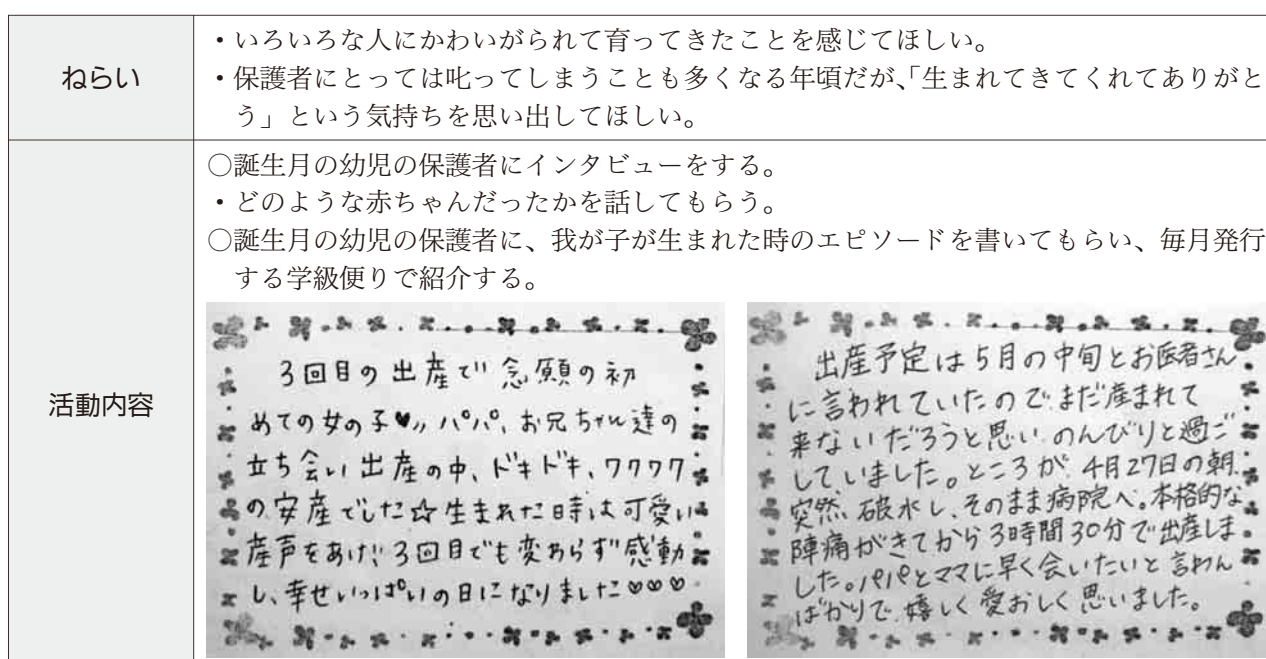 ねらい
・いろいろな人にかわいがられて育ってきたことを感じてほしい。
・保護者にとっては叱ってしまうことも多くなる年頃だが、「生まれてきてくれてありがと
う」という気持ちを思い出してほしい。
活動内容
○誕生月の幼児の保護者にインタビューをする。
・どのような赤ちゃんだったかを話してもらう。
○誕生月の幼児の保護者に、我が子が生まれた時のエピソードを書いてもらい、毎月発行
する学級便りで紹介する。
3回目の出産で念願の初
めての女の子♥〃パパ、お兄ちゃん達の
立ち会い出産の中、ドキドキ、ワクワク
の安産でした☆生まれた時は可愛い
産声をあげ!!3回目でも変わらず感動
し、幸せいっぱいの日になりました♡♡♡
出産予定は5月の中旬とお医者さん
に言われていたので、まだ産まれて
来ないだろうと思い、のんびりと過ご
していました。ところが、4月27日の朝、
突然、破水し、そのまま病院へ。本格的な
陣痛がきてから3時間30分で出産しま
した。パパとママに早く会いたいと言わん
ばかりで、嬉しく愛おしく思いました。